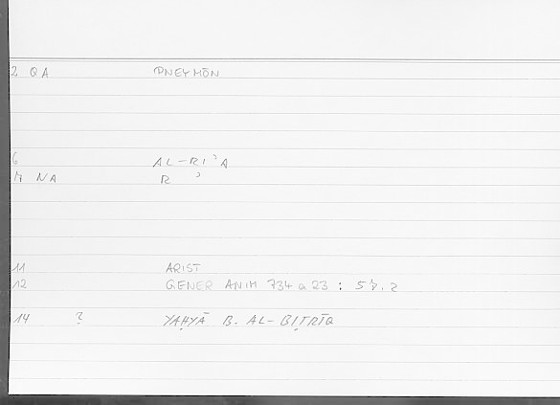 2 QA PNEYMŌN
6 AL-RIʾA
7 NA R ʾ
11 ARIST
12 GENER ANIM 734 a 23 :
14 ? YAḤYĀ B. AL-BIṬRĪQ